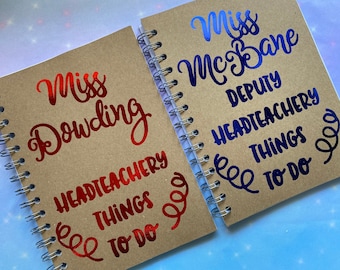 Miss
Dowding
HEADTEACHERY
THINGS
TO DO
Miss
McBane
DEPUTY
HEADTEACHERY
THINGS
TO DO